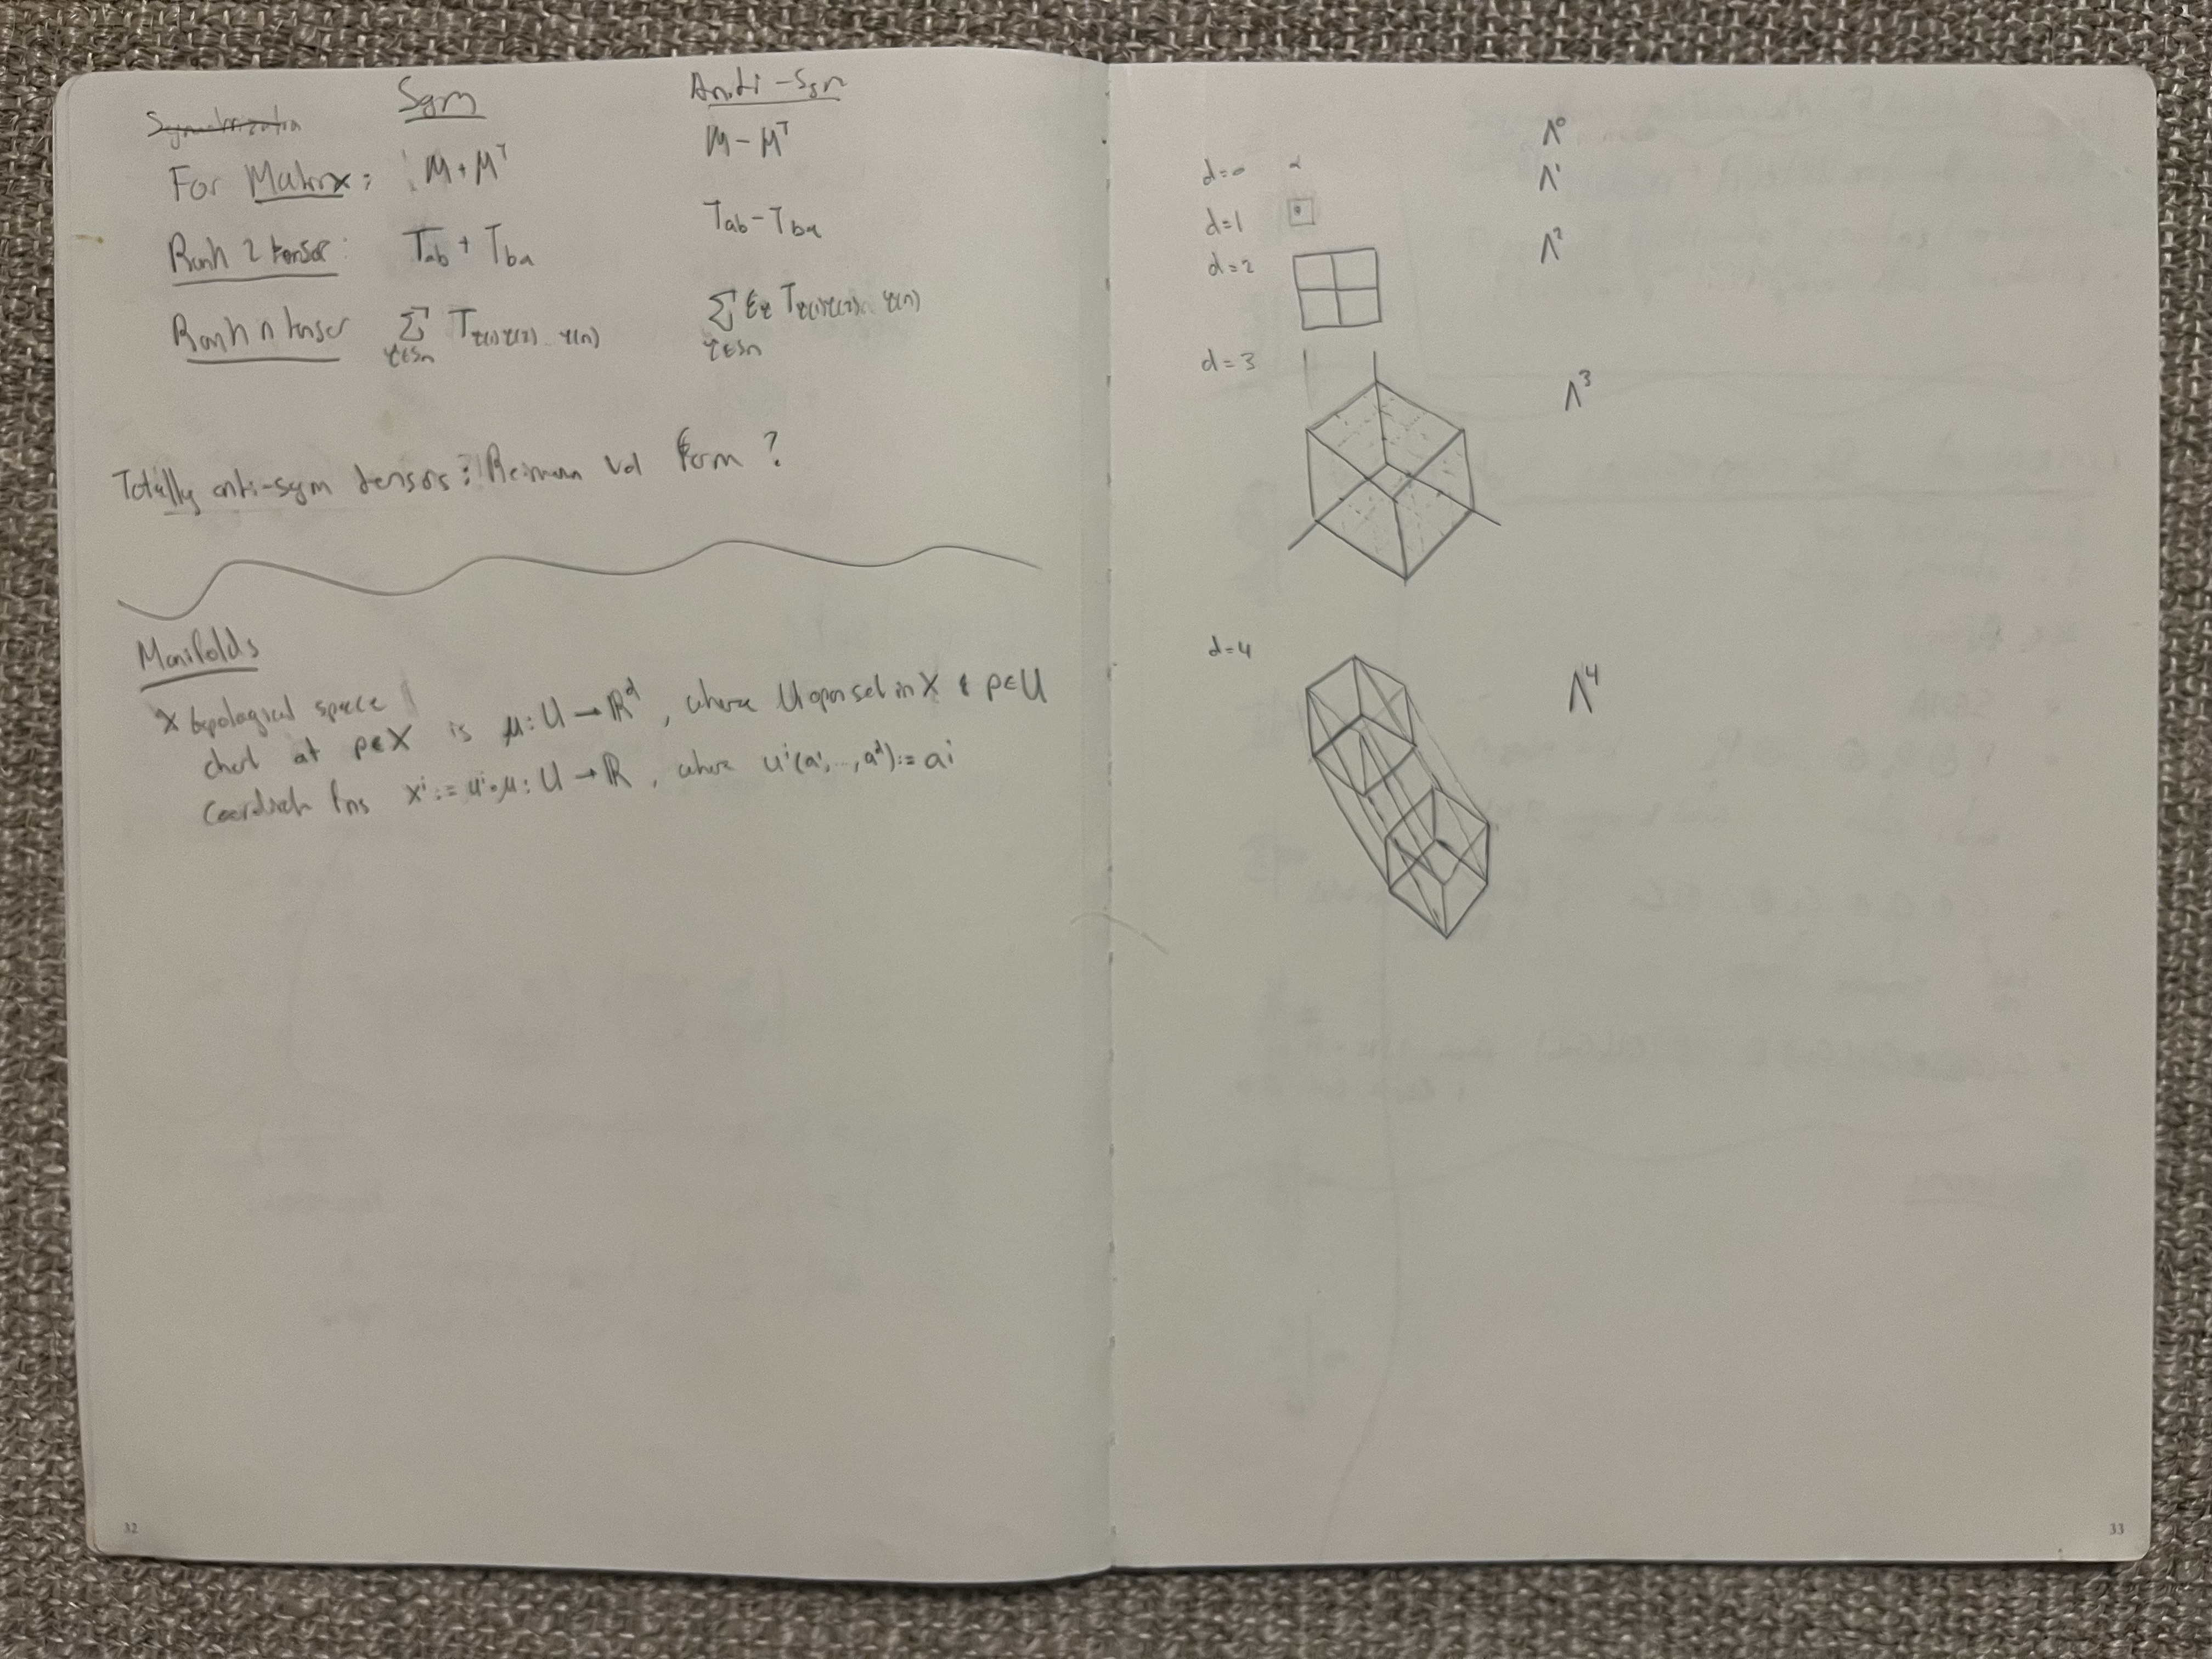 Symmetrization
Sym Anti-Sym
For Matrix: M+Mᵀ M-Mᵀ
Rank 2 tensor: Tab + Tba Tab - Tba
Rank n tensor Σ τ∈Sn Tτ(1)τ(2)...τ(n) Σ τ∈Sn ετ Tτ(1)τ(2)...τ(n)
Totally anti-sym tensors? Riemann vol form?
Manifolds
X topological space
chart at p∈X is μ: U → ℝᵈ, where U open set in X & p∈U
coordinate fns xⁱ := uⁱ∘μ: U → ℝ, where uⁱ(a¹,...,aᵈ) := aⁱ
32
d=0 Λ⁰
d=1 Λ¹
d=2 Λ²
d=3 Λ³
d=4 Λ⁴
33